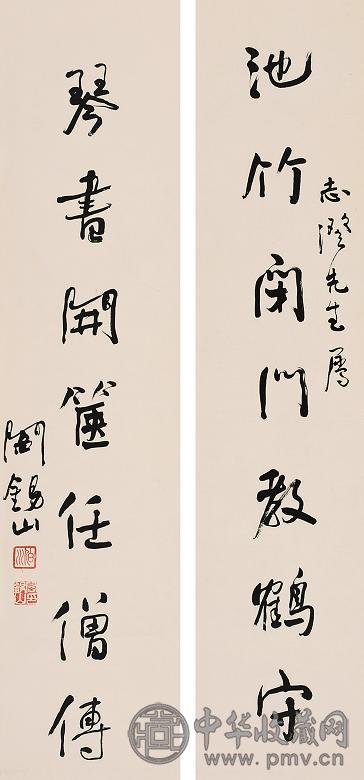 志澄先生屬
池竹閉門教鶴守
琴書開篋任僧傳
閻錫山
中华收藏网
www.pmv.cn